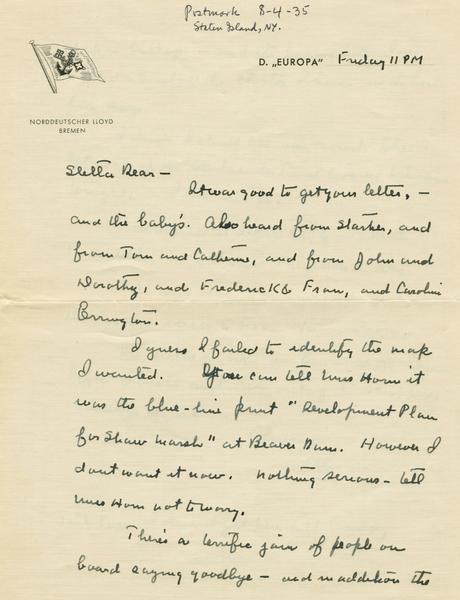 Postmark 8-4-35
Staten Island, NY.
D. „EUROPA" Friday 11 PM
NORDDEUTSCHER LLOYD
BREMEN
Stella Dear —
It was good to get your letter, —
and the baby's. Also heard from Starker, and
from Tom and Catherine, and from John and
Dorothy, and Frederick & Fran, and Carolin
Errington.
I guess I failed to identify the map
I wanted. You can tell Miss Horn it
was the blue-line print "Development Plan
for Shaw Marsh" at Beaver Dam. However I
dont want it now. Nothing serious — tell
Miss Horn not to worry.
There's a terrific jam of people on
board saying goodbye — and in addition the